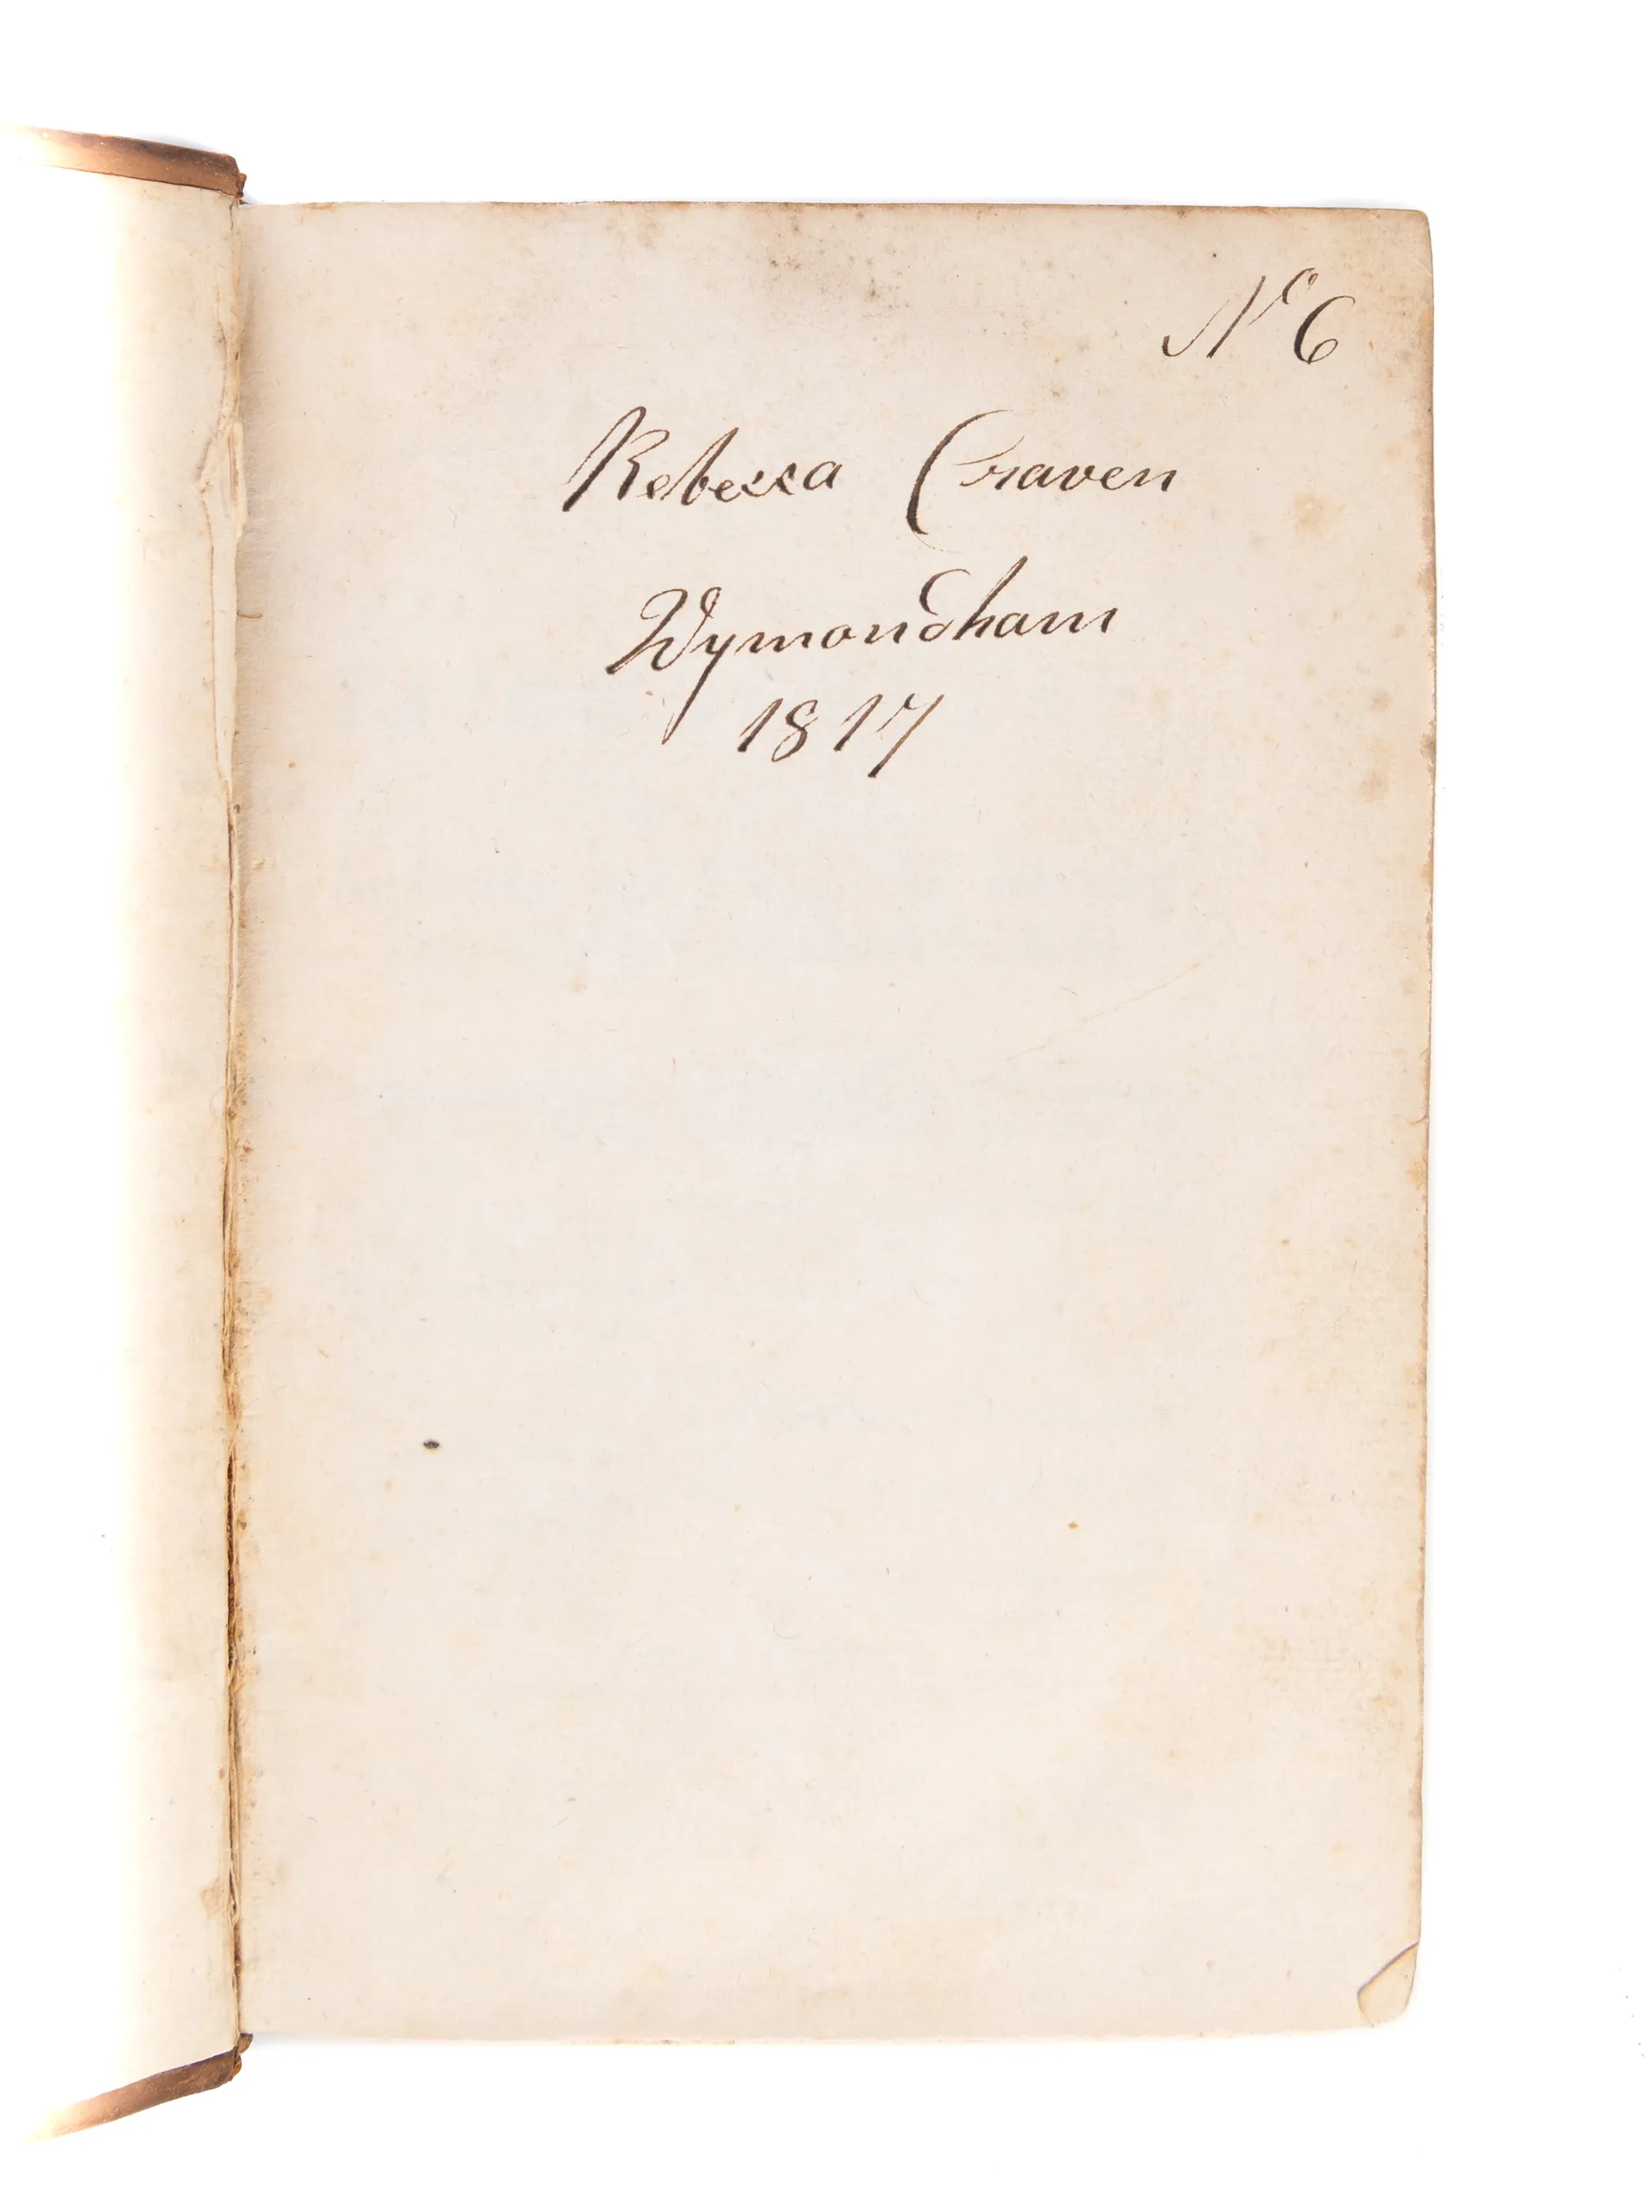 No 6
Rebecca Craven
Wymondham
1817